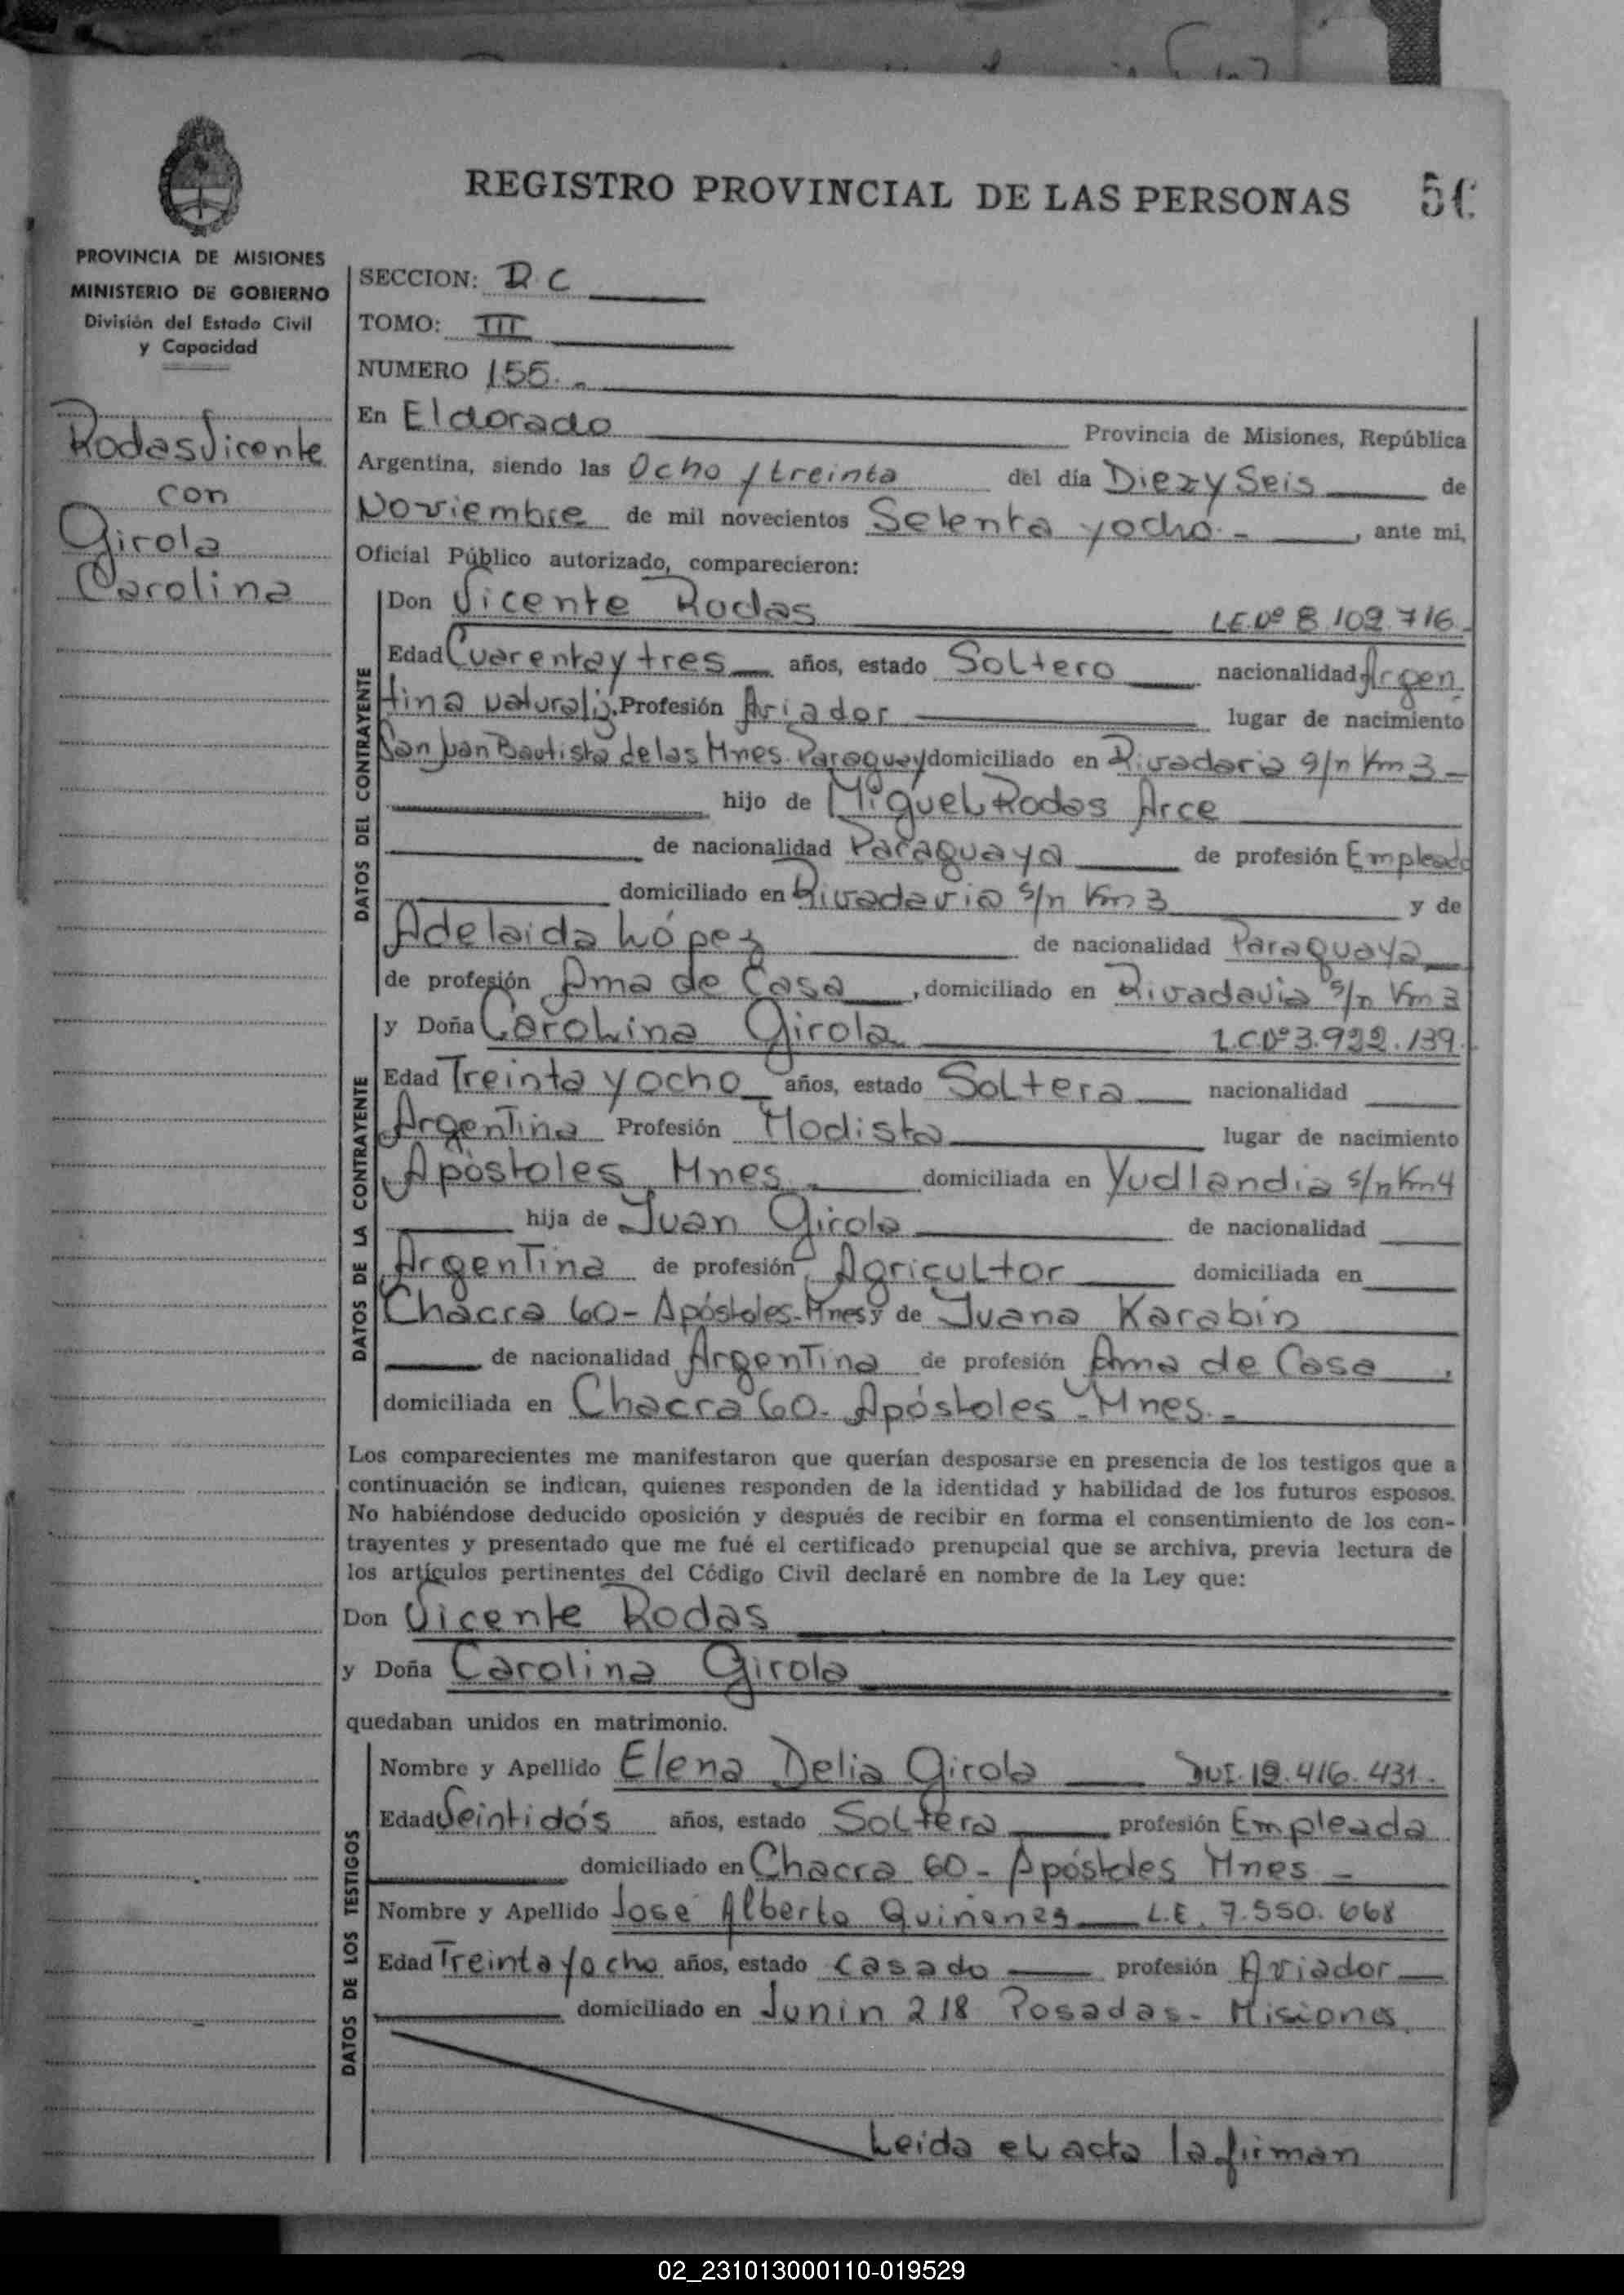 REGISTRO PROVINCIAL DE LAS PERSONAS
PROVINCIA DE MISIONES
MINISTERIO DE GOBIERNO
División del Estado Civil
y Capacidad
Rodas Vicente
con
Girola
Carolina
SECCION: D.C
TOMO: III
NUMERO 155.-
En Eldorado Provincia de Misiones, República
Argentina, siendo las Ocho y treinta del día Diez y Seis de
Noviembre de mil novecientos Setenta y ocho.- , ante mi,
Oficial Público autorizado, comparecieron:
DATOS DEL CONTRAYENTE
Don Vicente Rodas L.E.Nº 8.102.716.
Edad Cuarenta y tres años, estado Soltero nacionalidad Argen
tina naturaliz. Profesión Aviador lugar de nacimiento
San Juan Bautista de las Mnes. Paraguay domiciliado en Rivadavia s/n Km 3-
hijo de Miguel Rodas Arce
de nacionalidad Paraguaya de profesión Empleado
domiciliado en Rivadavia s/n Km 3 y de
Adelaida López de nacionalidad Paraguaya
de profesión Ama de Casa , domiciliado en Rivadavia s/n Km 3
DATOS DE LA CONTRAYENTE
y Doña Carolina Girola L.C.Nº 3.922.139.
Edad Treinta y ocho años, estado Soltera nacionalidad
Argentina Profesión Modista lugar de nacimiento
Apóstoles Mnes. domiciliada en Yudlandia s/n Km 4
hija de Juan Girola de nacionalidad
Argentina de profesión Agricultor domiciliada en
Chacra 60- Apóstoles-Mnes y de Juana Karabin
de nacionalidad Argentina de profesión Ama de Casa ,
domiciliada en Chacra 60- Apóstoles - Mnes.-
Los comparecientes me manifestaron que querían desposarse en presencia de los testigos que a
continuación se indican, quienes responden de la identidad y habilidad de los futuros esposos.
No habiéndose deducido oposición y después de recibir en forma el consentimiento de los con-
trayentes y presentado que me fué el certificado prenupcial que se archiva, previa lectura de
los artículos pertinentes del Código Civil declaré en nombre de la Ley que:
Don Vicente Rodas
y Doña Carolina Girola
quedaban unidos en matrimonio.
DATOS DE LOS TESTIGOS
Nombre y Apellido Elena Delia Girola 12.416.431.
Edad Veintidós años, estado Soltera profesión Empleada
domiciliado en Chacra 60- Apóstoles Mnes -
Nombre y Apellido José Alberto Quiñones L.E. 7.550.668
Edad Treinta y ocho años, estado Casado profesión Aviador
domiciliado en Junin 218 Posadas- Misiones
Leida el acta la firman
02_231013000110-019529